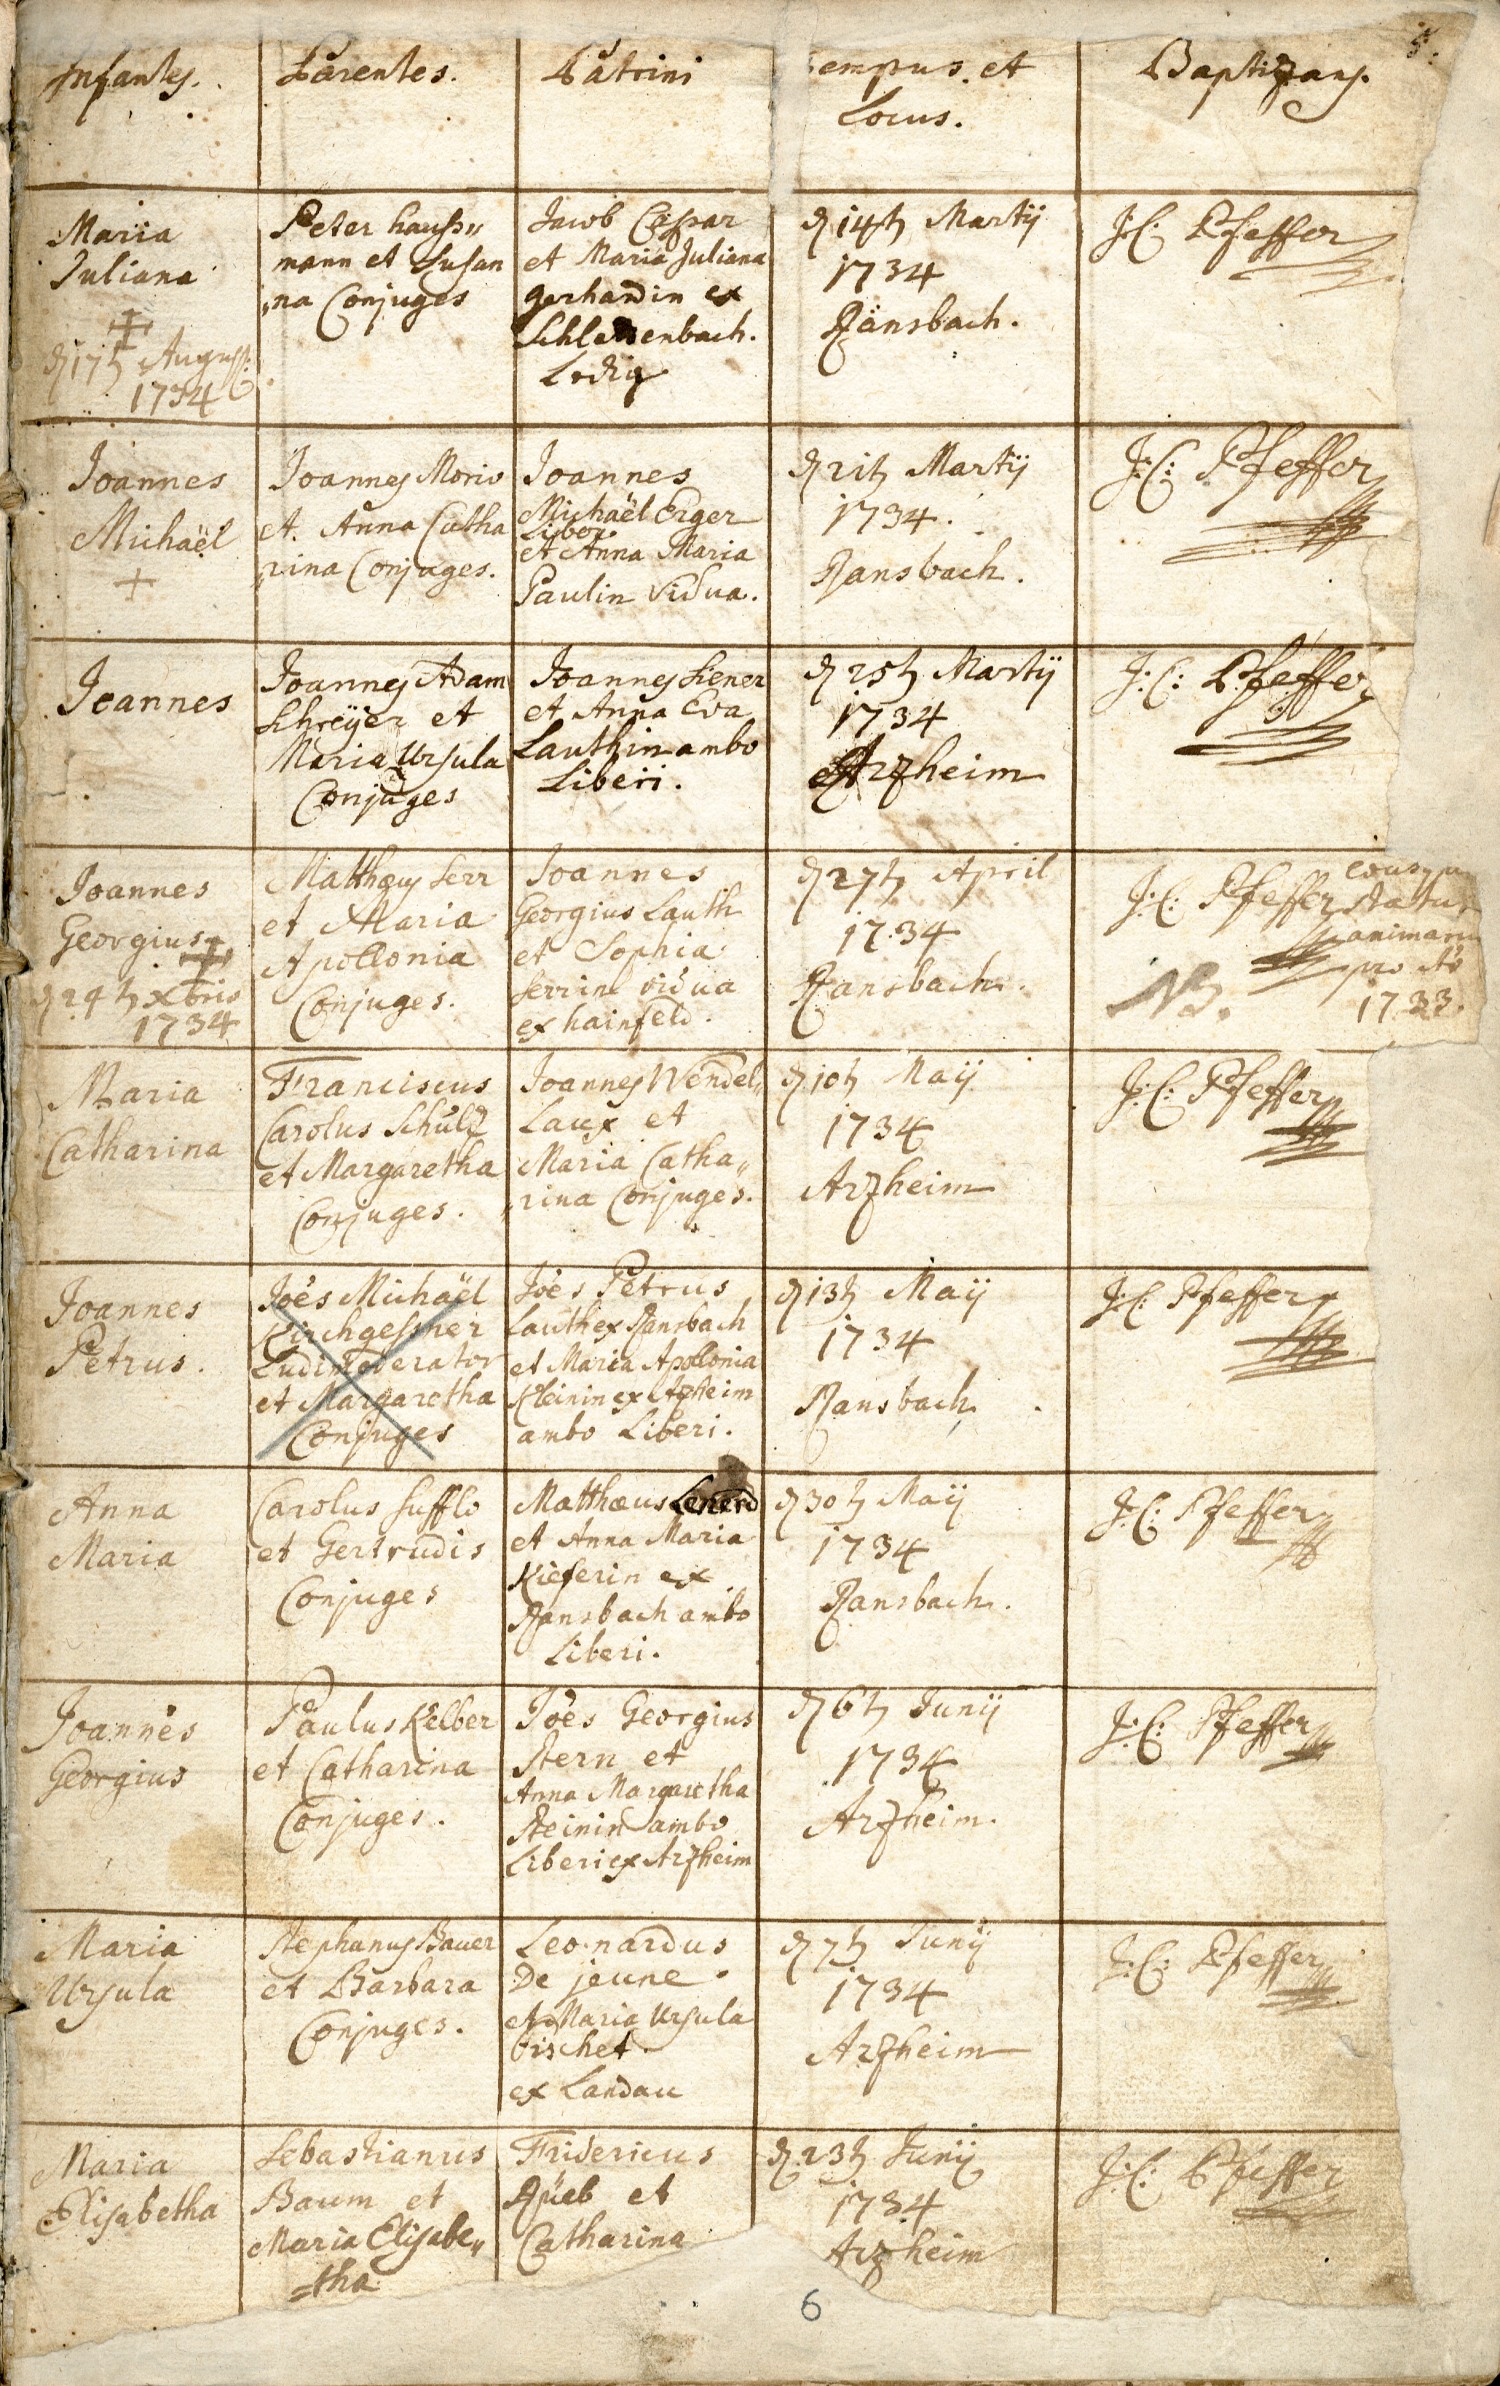 5.
Infantes. Parentes. Patrini Tempus et Baptizans.
Locus.
Maria
Juliana
‡
d 17t August:
1734
Peter hauß„
mann et Susan
„na Conjuges
Jacob Caspar
et Maria Juliana
gerhardin ex
Schlettenbach.
Ledig
d 14t Martij
1734
Ransbach.
J:C: Pfeffer
Joannes
Michaël
+
Joannes Moris
et Anna Catha
„rina Conjuges.
Joannes
Michaël Erger
Liber
et Anna Maria
Paulin Vidua.
d 21t Martij
1734.
Ransbach.
J:C: Pfeffer
Joannes
Joannes Adam
Schreijer et
Maria Ursula
Conjuges
Joannes Sener
et Anna Eva
Lauthin ambo
Liberi.
d 25t Martij
1734
Arzheim
J:C: Pfeffer
Joannes
Georgius
‡
d 24t Xbris
1734
Matthæus Serr
et Maria
Apollonia
Conjuges.
Joannes
Georgius Lauth
et Sophia
Serrin vidua
ex hainfeld.
d 27t April
1734
Ransbach.
J:C: Pfeffer
status
animarum
pro Ao
1733.
NB.
Maria
Catharina
Franciscus
Carolus Schulz
et Margaretha
Conjuges.
Joannes Wendel„
Laux et
Maria Catha„
„rina Conjuges.
d 10t Maij
1734
Arzheim
J:C: Pfeffer
Joannes
Petrus.
Joes Michaël
Kirchgeßner
Ludimoderator
et Margaretha
Conjuges
Joes Petrus
Lauth ex Ransbach
et Maria Apollonia
Kleinin ex Azheim
ambo Liberi.
d 13t Maij
1734
Ransbach.
J:C: Pfeffer
Anna
Maria
Carolus Sufflo
et Gertrudis
Conjuges
Matthæus Lenerd
et Anna Maria
Kieferin ex
Ransbach ambo
Liberi.
d 30t Maij
1734
Ransbach.
J:C: Pfeffer
Joannes
Georgius
Paulus Kelber
et Catharina
Conjuges.
Joes Georgius
Stern et
Anna Margaretha
Steinin ambo
Liberi ex Arzheim
d 6t Junij
1734
Arzheim.
J:C: Pfeffer
Maria
Ursula
Stephanus Bauer
et Barbara
Conjuges.
Leonardus
De jeune
et Maria Ursula
bischet
ex Landau
d 7t Junij
1734
Arzheim
J:C: Pfeffer
Maria
Elisabetha
Sebastianus
Baum et
Maria Elisabe„
=tha
Fridericus
Rüeb et
Catharina
d 23t Junij
1734
Arzheim
J:C: Pfeffer
6